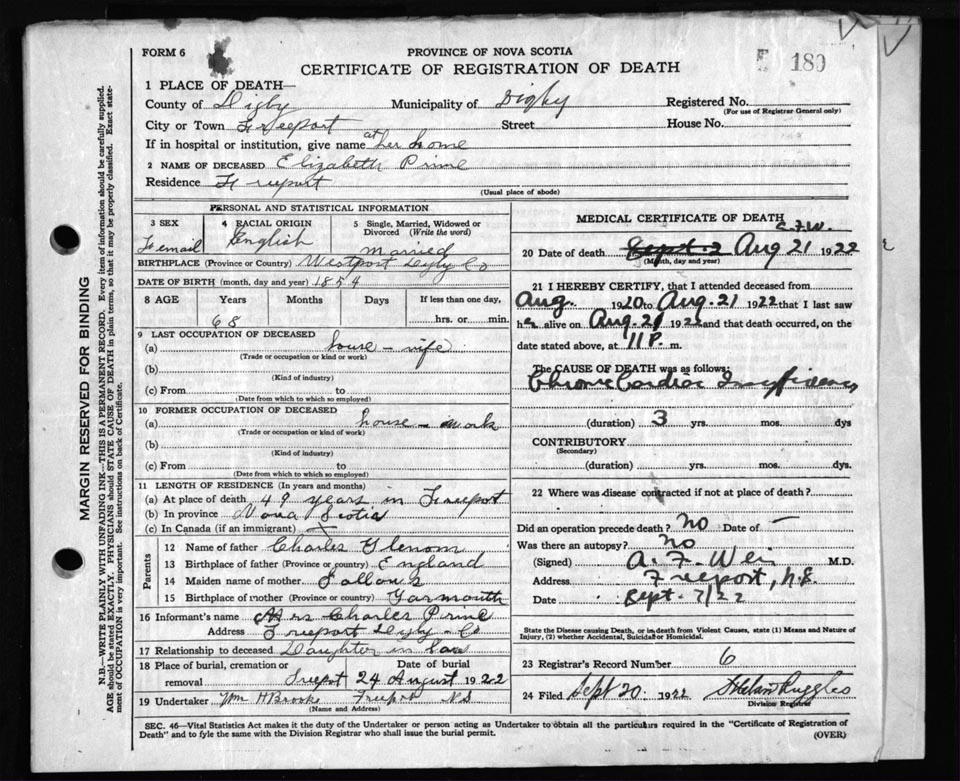 FORM 6
PROVINCE OF NOVA SCOTIA
CERTIFICATE OF REGISTRATION OF DEATH
180
1 PLACE OF DEATH—
County of Digby Municipality of Digby Registered No.
(For use of Registrar General only)
City or Town Freeport Street House No.
If in hospital or institution, give name at her home
2 NAME OF DECEASED Elizabeth Prime
Residence Freeport
(Usual place of abode)
PERSONAL AND STATISTICAL INFORMATION
3 SEX 4 RACIAL ORIGIN 5 Single, Married, Widowed or Divorced (Write the word)
Femail English Married
BIRTHPLACE (Province or Country) Westport Digby Co
DATE OF BIRTH (month, day and year) 1854
8 AGE Years Months Days If less than one day,
68 hrs. or min.
9 LAST OCCUPATION OF DECEASED
(a) house - wife
(Trade or occupation or kind or work)
(b)
(Kind of industry)
(c) From to
(Date from which to which so employed)
10 FORMER OCCUPATION OF DECEASED
(a) house - work
(Trade or occupation or kind of work)
(b)
(Kind of industry)
(c) From to
(Date from which to which so employed)
11 LENGTH OF RESIDENCE (In years and months)
(a) At place of death 49 years in Freeport
(b) In province Nova Scotia
(c) In Canada (if an immigrant)
Parents
12 Name of father Charles Glenom
13 Birthplace of father (Province or country) England
14 Maiden name of mother
15 Birthplace of mother (Province or country) Yarmouth
16 Informant's name Mrs Charles Prime
Address Freeport Digby Co
17 Relationship to deceased Daughter in law
18 Place of burial, cremation or removal Date of burial
Freeport 24 August 1922
19 Undertaker Wm H Brooks Freeport NS
(Name and Address)
MEDICAL CERTIFICATE OF DEATH
A.F.W.
20 Date of death Sept. 2 Aug 21 1922
(Month, day and year)
21 I HEREBY CERTIFY, that I attended deceased from
Aug. 1920 to Aug. 21 1922 that I last saw
her alive on Aug. 21 1922 and that death occurred, on the
date stated above, at 11 P. m.
The CAUSE OF DEATH was as follows:
Chronic Cardiac Insufficiency
(duration) 3 yrs. mos. dys
CONTRIBUTORY
(Secondary)
(duration) yrs. mos. dys.
22 Where was disease contracted if not at place of death?
Did an operation precede death? No Date of —
Was there an autopsy? No
(Signed) A. F. M.D.
Address Freeport, N.S.
Date Sept. 7/22
State the Disease causing Death, or in death from Violent Causes, state (1) Means and Nature of
Injury, (2) whether Accidental, Suicidal or Homicidal.
23 Registrar's Record Number 6
24 Filed Sept 20. 1922 Ruggles
Division Registrar
SEC. 46—Vital Statistics Act makes it the duty of the Undertaker or person acting as Undertaker to obtain all the particulars required in the "Certificate of Registration of
Death" and to fyle the same with the Division Registrar who shall issue the burial permit.
(OVER)
MARGIN RESERVED FOR BINDING
N.B.—WRITE PLAINLY WITH UNFADING INK—THIS IS A PERMANENT RECORD. Every item of information should be carefully supplied.
AGE should be stated EXACTLY. PHYSICIANS should STATE CAUSE OF DEATH in plain terms, so that it may be properly classified. Exact state-
ment of OCCUPATION is very important. See instructions on back of Certificate.